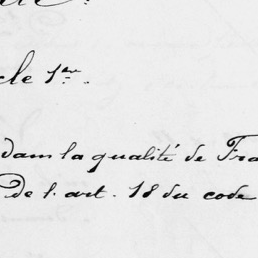 cle 1er.
dans la qualité de Fra
de l'art. 18 du code